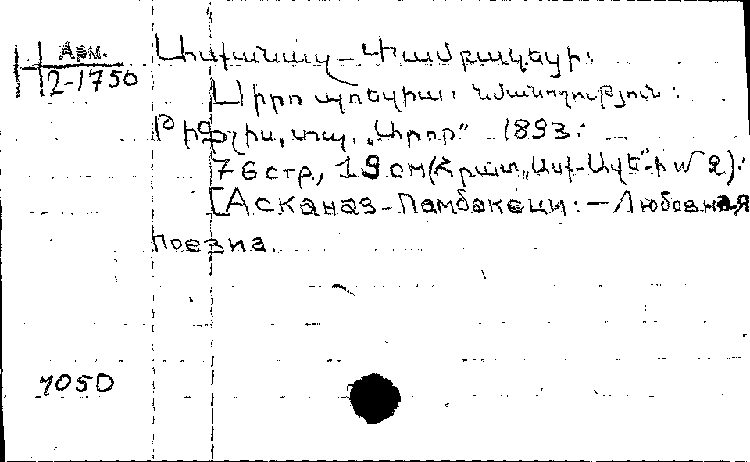 Арм.
H 2-1750
Ասքանազ-Փամբակեցի:
Սիրո պոեզիա: նմանողություն:
Թիֆլիս, տպ. „Արոր“ 1893:
76 стр., 19 см (Հրատ. №2):
[Асканаз-Памбакеци: — Любовная
поезиа.
1050